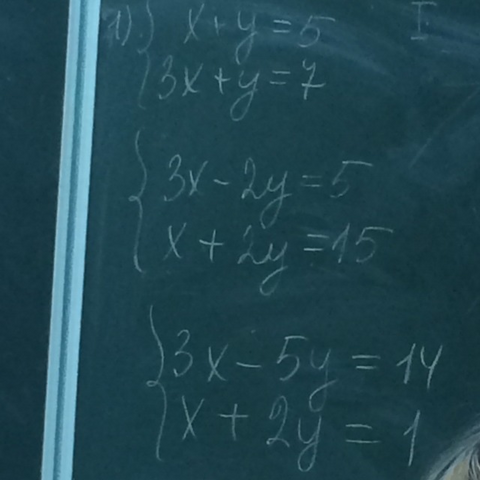 1) x+y=5 I
3x+y=7
3x-2y=5
x+2y=15
3x-5y=14
x+2y=1